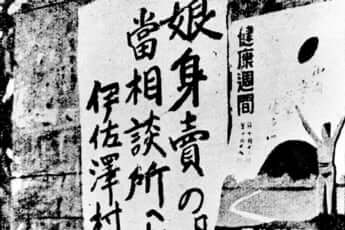 娘身賣の
當相談所へ
伊佐澤村
健康週間